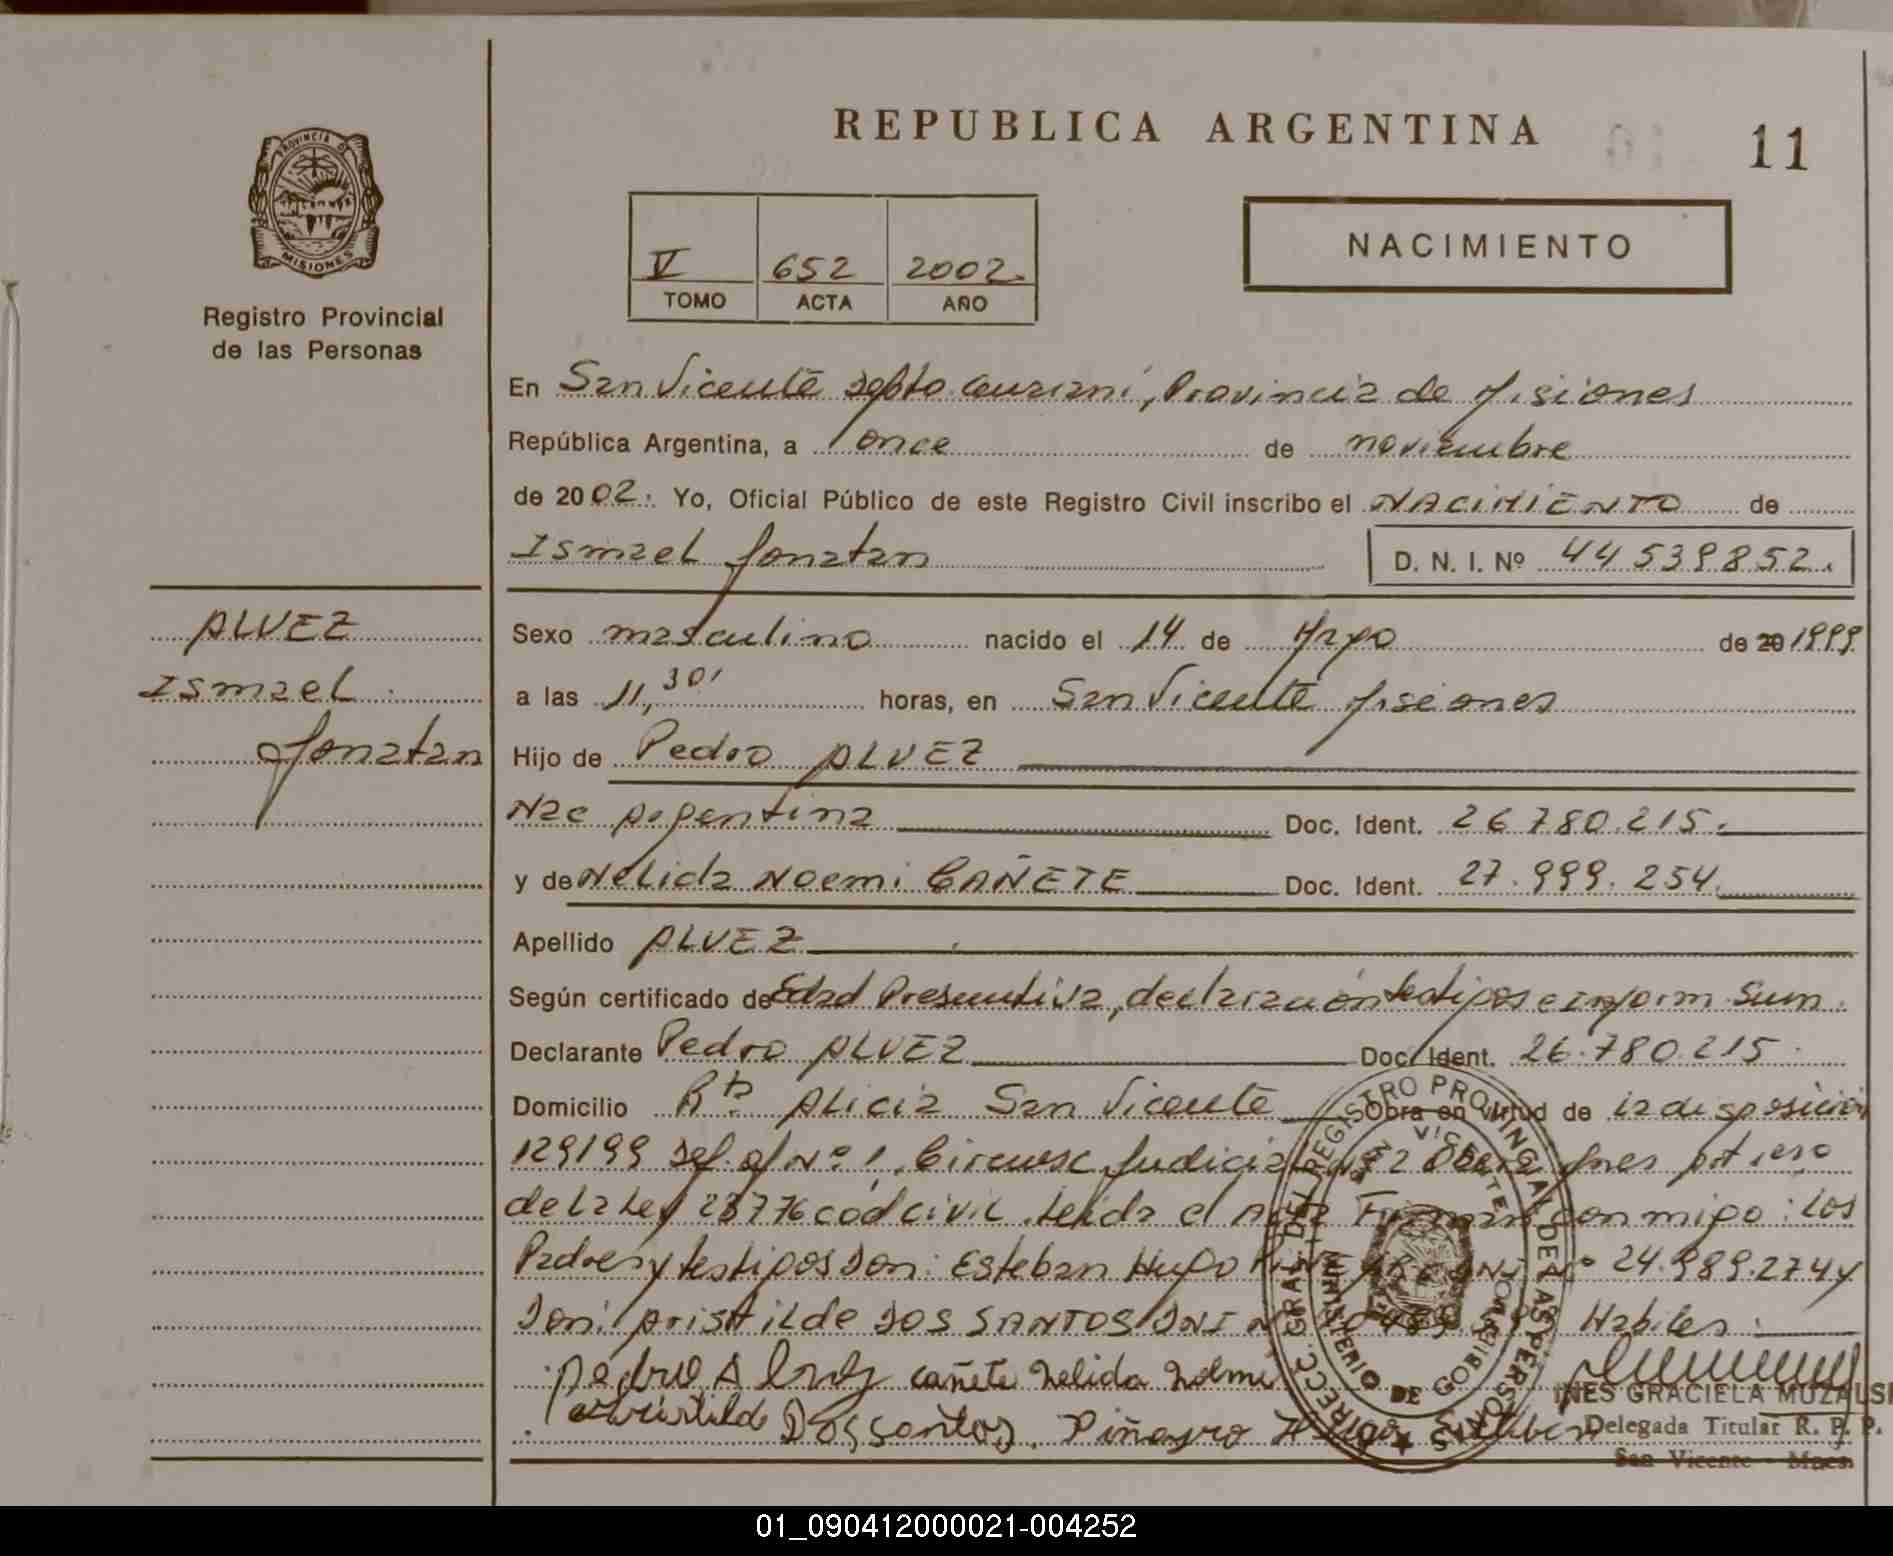 REPUBLICA ARGENTINA
11
PROVINCIA D
MISIONES
Registro Provincial
de las Personas
V 652 2002.
TOMO ACTA AÑO
NACIMIENTO
En San Vicente Depto. Guaraní, Provincia de Misiones
República Argentina, a once de noviembre
de 2002. Yo, Oficial Público de este Registro Civil inscribo el NACIMIENTO de
Ismael Jonatan D. N. I. Nº 44539852.
ALVEZ
Ismael
Jonatan
Sexo masculino nacido el 14 de Mayo de 20 1999
a las 11,30' horas, en San Vicente Misiones
Hijo de Pedro ALVEZ
Nac Argentina Doc. Ident. 26.780.215.
y de Nelida Noemi CAÑETE Doc. Ident. 27.999.254
Apellido ALVEZ
Según certificado de Edad Presuntiva, declaración testigos e inform. Sum.
Declarante Pedro ALVEZ Doc. Ident. 26.780.215
Domicilio Alicia San Vicente Obra en virtud de la disposición
129/99 Def. of Nº 1, Circunsc. Judicial Obera
de la Ley 23776 cod civil. Leída el Acta Firman conmigo: Los
Padres y testigos Don: Esteban Hugo 24.989.274 y
Doni Aristilde DOS SANTOS DNI Habiles.
pedro Alvez cañete Nelida Noemi
Dos santos. Piñeyro Hugo Esteban
DIRECC. GRAL. DEL REGISTRO PROVINCIAL DE LAS PERSONAS
SAN VICENTE
MINISTERIO DE GOBIERNO
INES GRACIELA MUZALSK
Delegada Titular R. P. P.
San Vicente - Mnes.
01_090412000021-004252